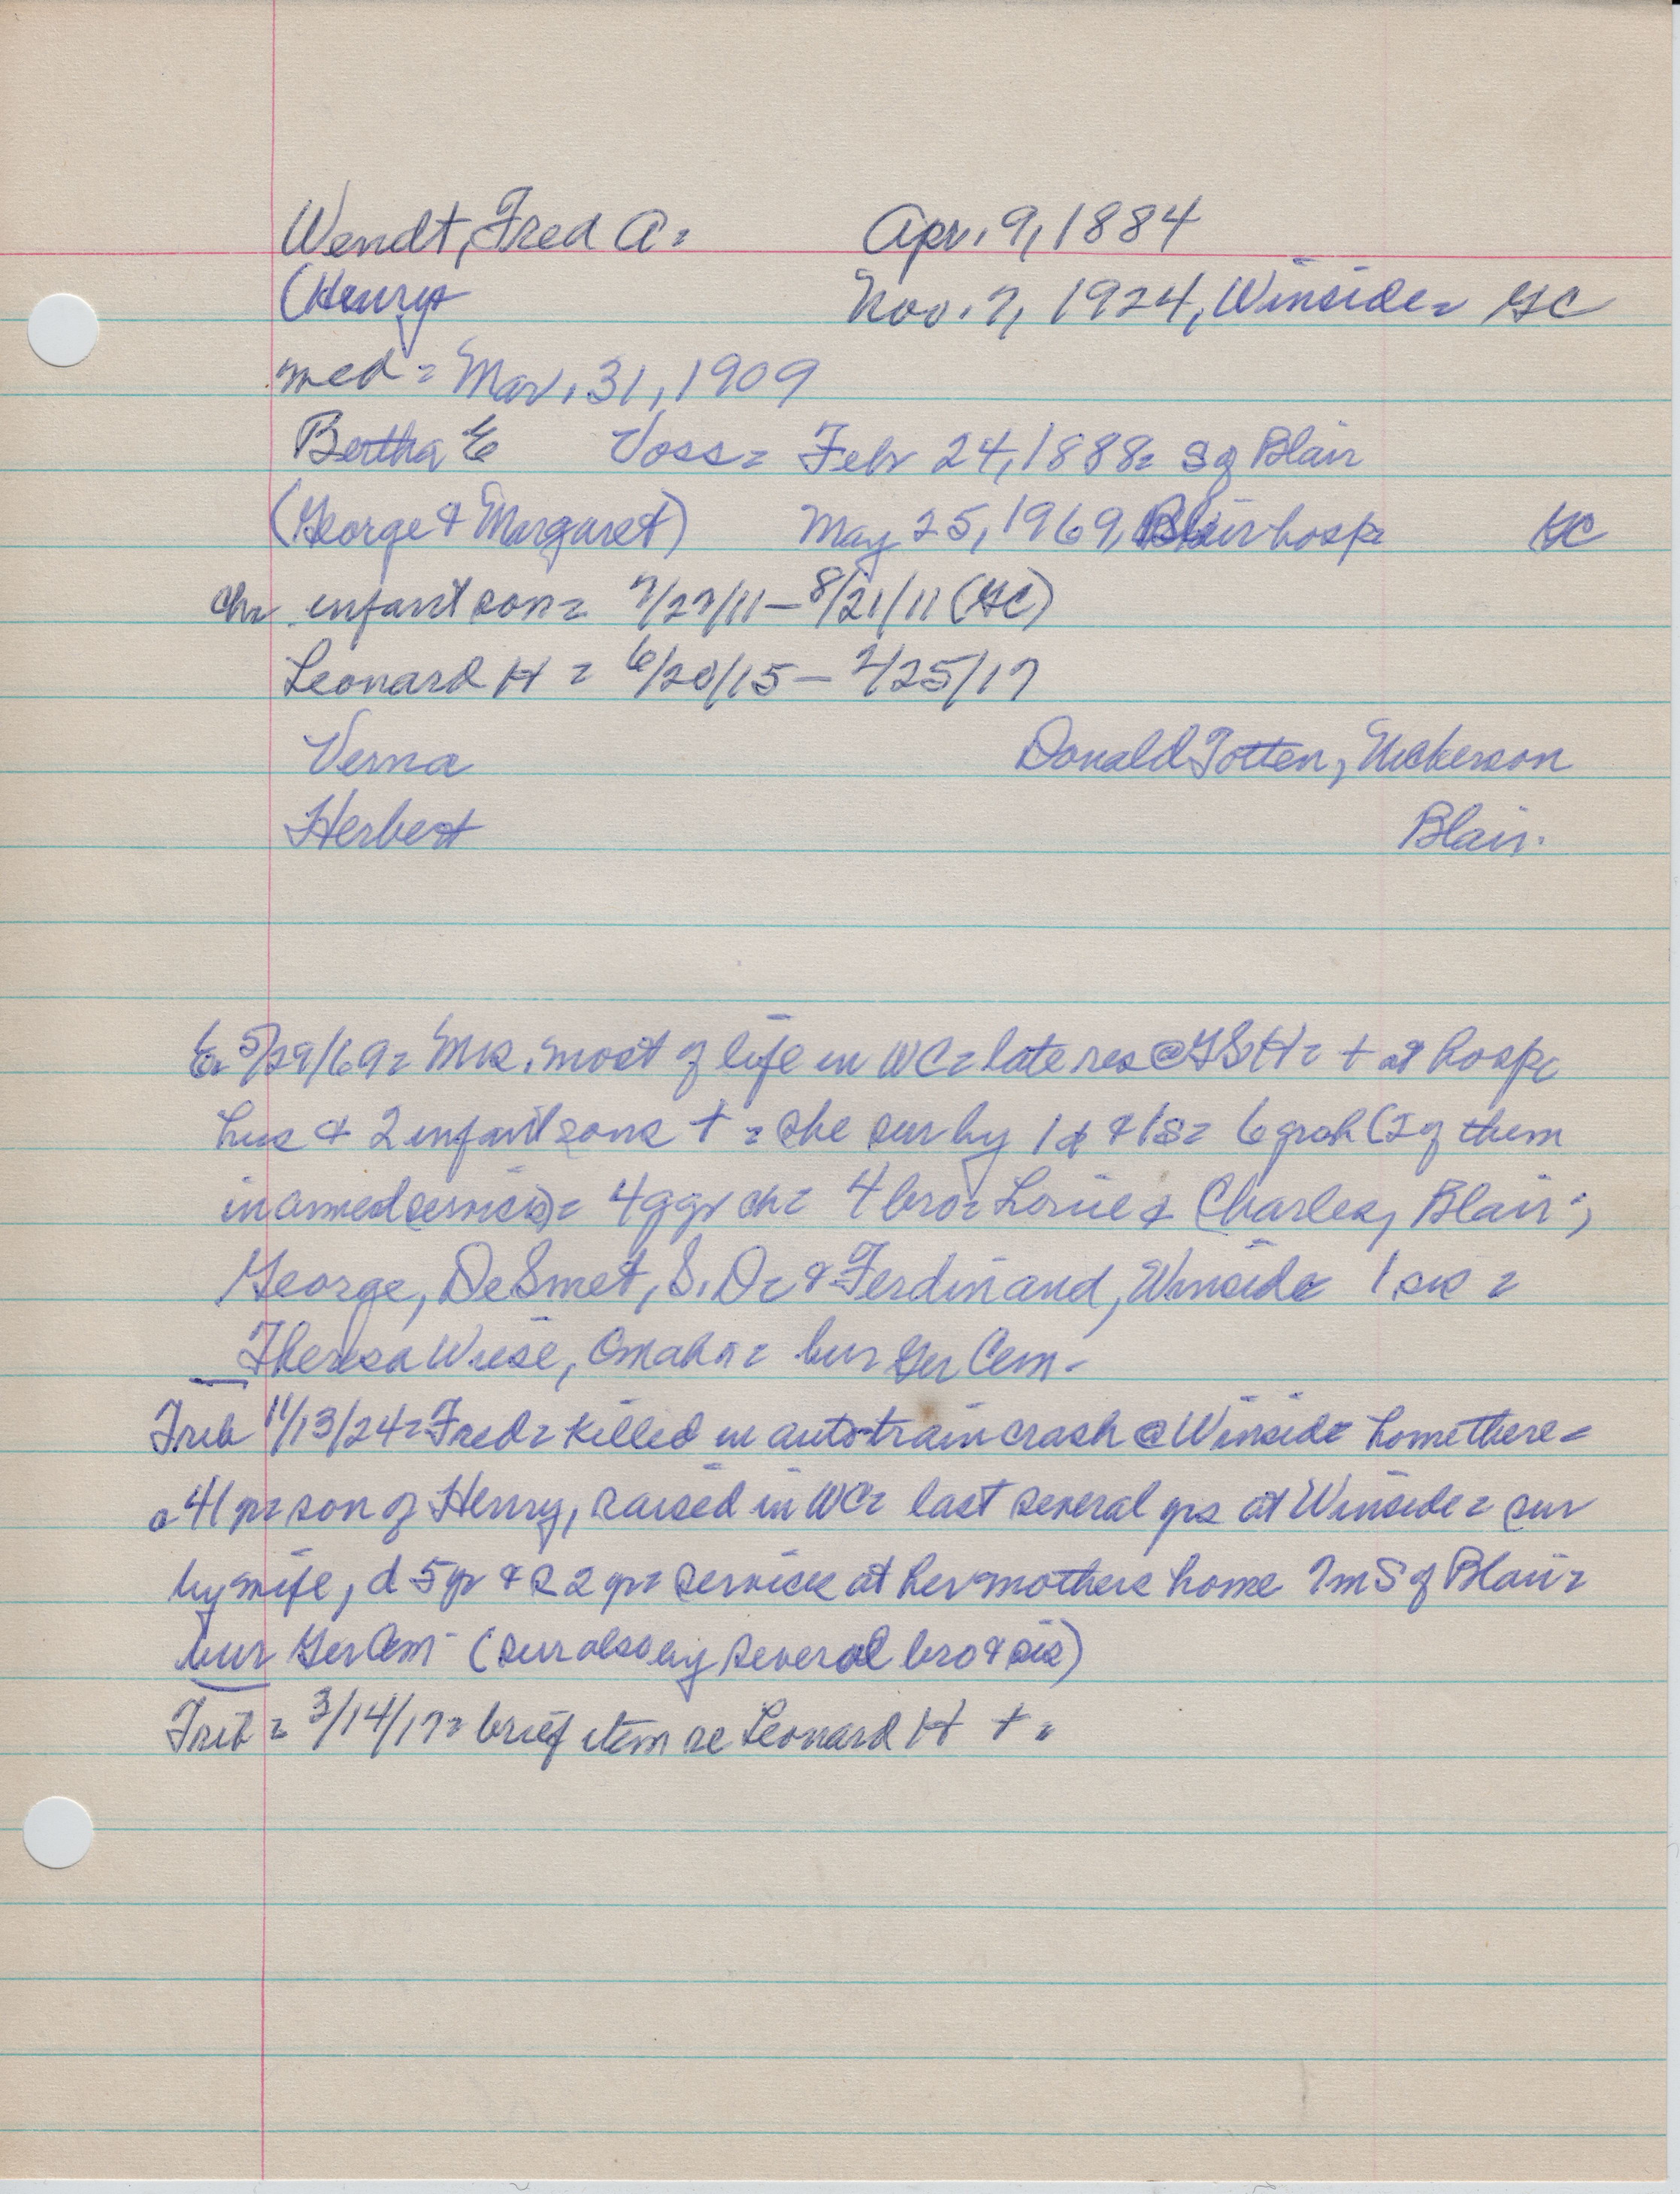 Wendt, Fred A= Apr. 9, 1884
(Henry Nov. 7, 1924, Winside= GC
med = Mar. 31, 1909
Bertha E Voss= Feb 24, 1888= S of Blair
(George & Margaret) May 25, 1969, Blair hosp= GC
ch= infant son= 7/27/11 – 8/21/11 (GC)
Leonard H = 6/20/15 – 2/25/17
Verna Donald Totten, Nickerson
Herbert Blair.
En 5/29/69= Mrs. most of life in WC= late res @ GSH= + at hosp=
hus & 2 infant sons + = she sur by 1d & 1s= 6 grch (2 of them
in armed services)= 4 ggr ch= 4 bro= Louie & Charles, Blair;
George, DeSmet, S. D= & Ferdinand, Winside 1 sis =
Theresa Wiese, Omaha= bur Ger Cem-
Trib 11/13/24= Fred= killed in auto-train crash @ Winside home there=
a 41 yr= son of Henry, raised in WC= last several yrs at Winside= sur
by wife, d 5 yr & s 2 yr= services at her mothers home 7 m S of Blair=
bur Ger Cem- (sur also by several bro & sis)
Trib = 3/14/17= brief item re Leonard H + =